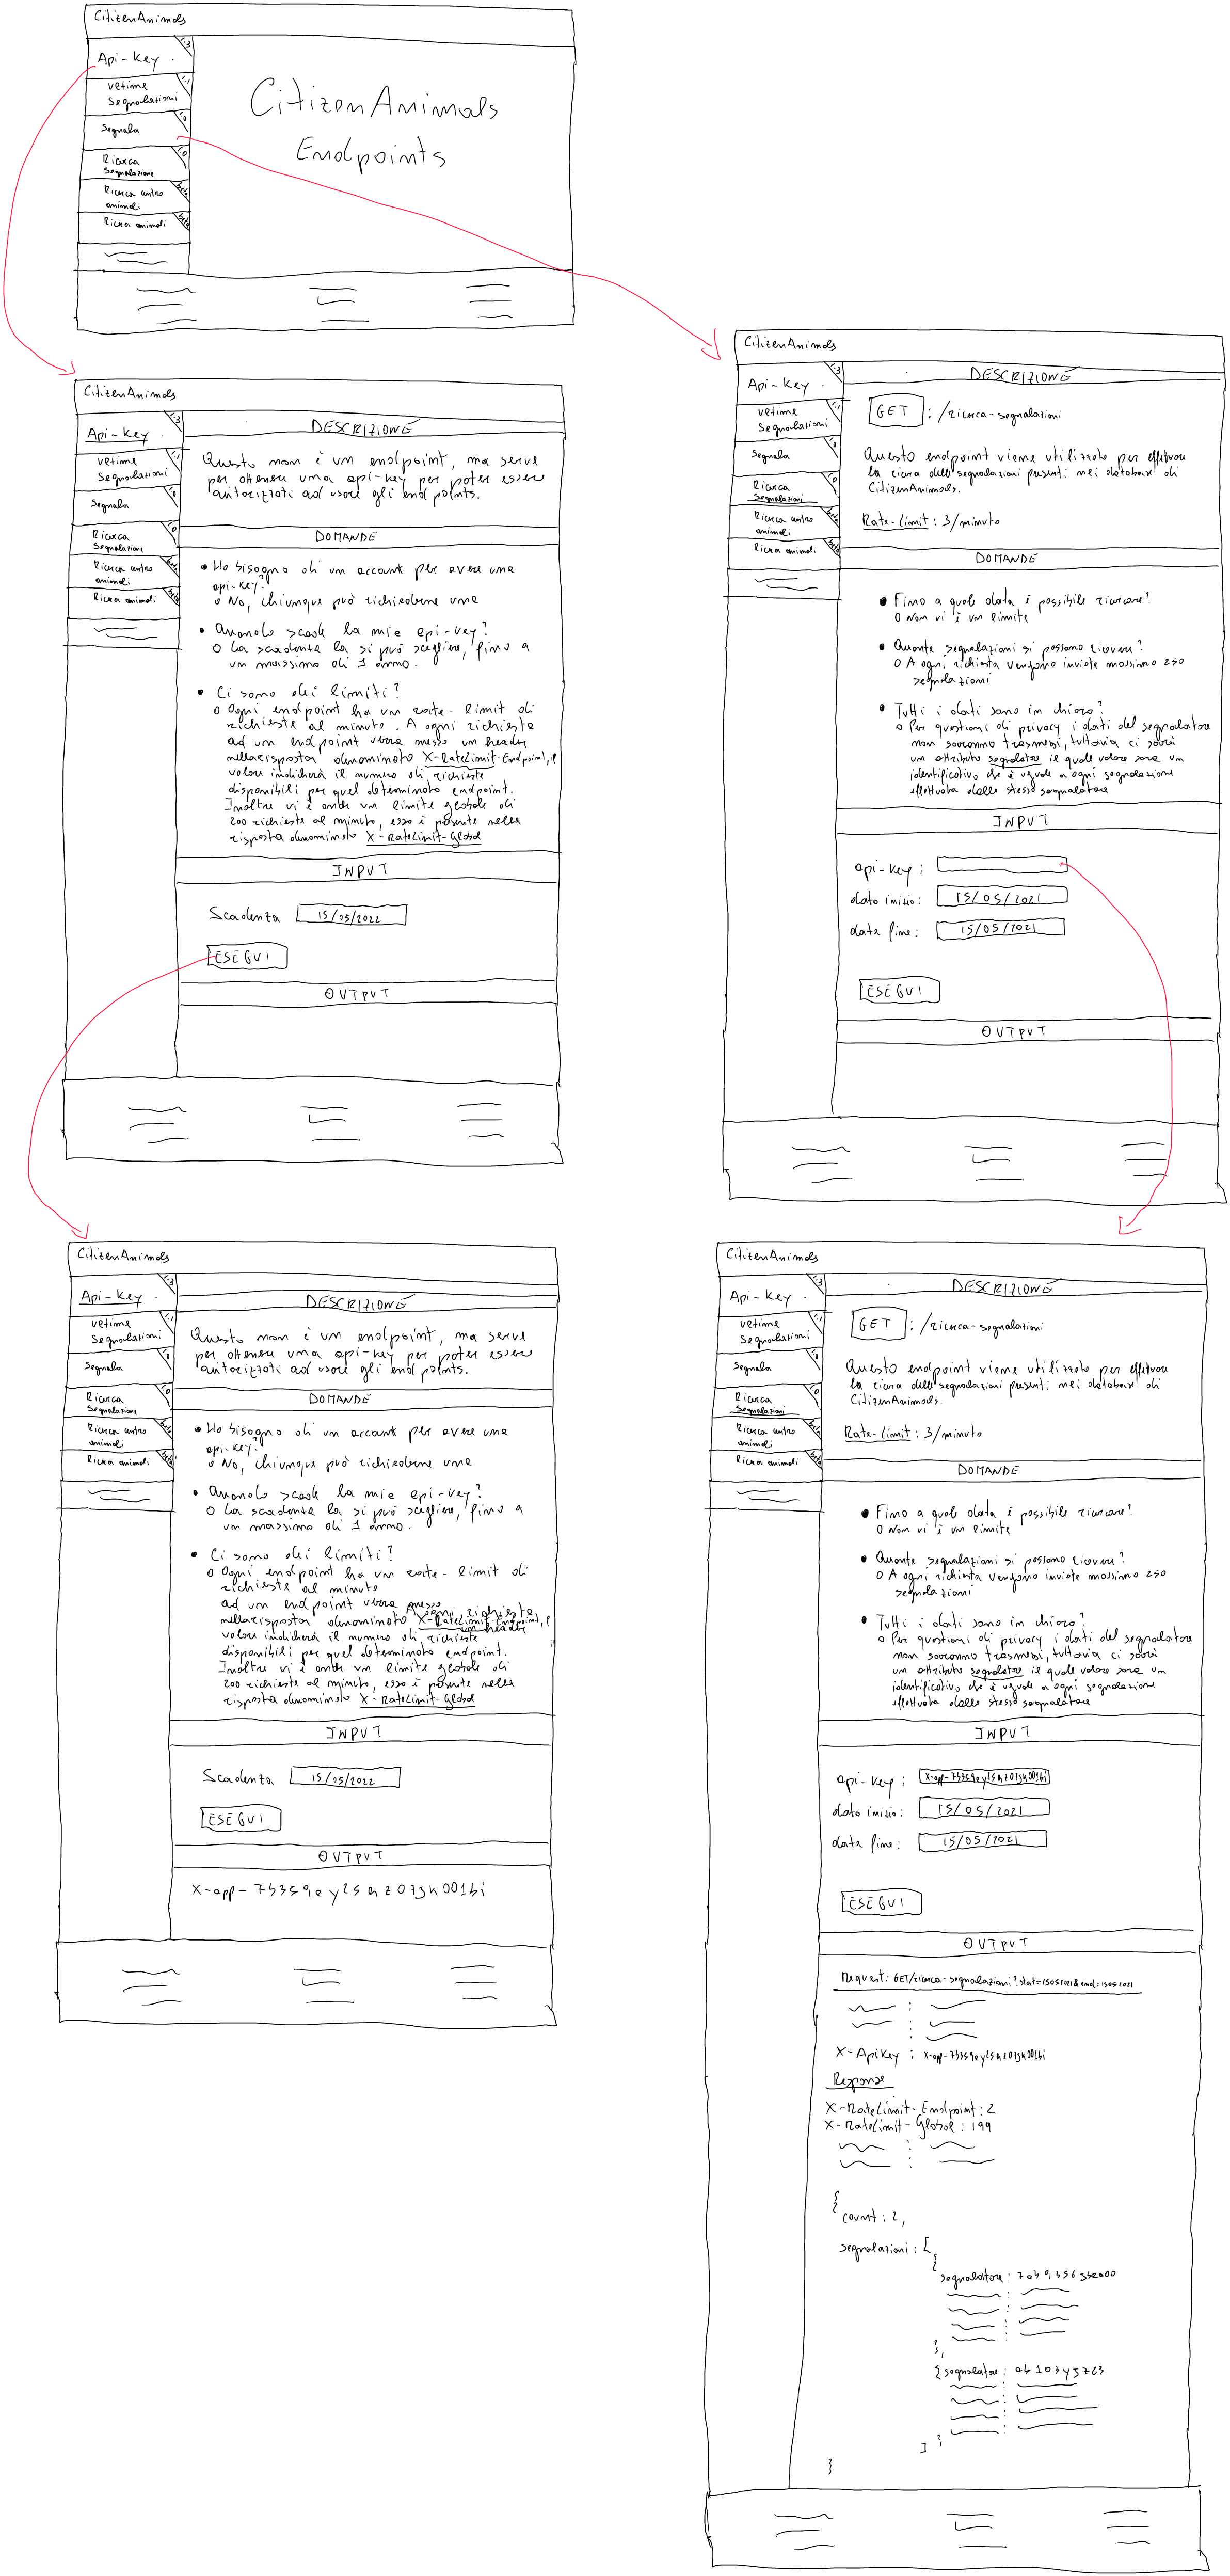 CitizenAnimals
Api-Key
Ultime
Segnalazioni
Segnala
Ricerca
Segnalazione
Ricerca centro
animali
Ricerca animali
beta
beta
CitizenAnimals
Endpoints
CitizenAnimals
Api-Key
Ultime
Segnalazioni
Segnala
Ricerca
Segnalazione
Ricerca centro
animali
Ricerca animali
beta
beta
DESCRIZIONE
Questo non è un endpoint, ma serve
per ottenere una api-key per poter essere
autorizzati ad usare gli endpoints.
DOMANDE
Ho bisogno di un account per avere una
api-key?
No, chiunque può richiederne una
Quando scade la mia api-key?
La scadenza la si può scegliere, fino a
un massimo di 1 anno.
Ci sono dei limiti?
Ogni endpoint ha un rate-limit di
richieste al minuto. A ogni richiesta
ad un endpoint verrà messo un header
nella risposta denominato X-RateLimit-Endpoint, il
valore indicherà il numero di richieste
disponibili per quel determinato endpoint.
Inoltre vi è anche un limite globale di
200 richieste al minuto, esso è presente nella
risposta denominato X-RateLimit-Global
INPUT
Scadenza 15/05/2022
ESEGUI
OUTPUT
CitizenAnimals
Api-Key
Ultime
Segnalazioni
Segnala
Ricerca
Segnalazioni
Ricerca centro
animali
Ricerca animali
beta
beta
DESCRIZIONE
GET : /ricerca-segnalazioni
Questo endpoint viene utilizzato per effettuare
la ricerca delle segnalazioni presenti nei database di
CitizenAnimals.
Rate-Limit : 3/minuto
DOMANDE
Fino a quale data è possibile ricercare?
Non vi è un limite
Quante segnalazioni si possono ricevere?
A ogni richiesta vengono inviate massimo 250
segnalazioni
Tutti i dati sono in chiaro?
Per questioni di privacy i dati del segnalatore
non saranno trasmessi, tuttavia ci sarà
un attributo segnalatore il quale valore sarà un
identificativo che è uguale a ogni segnalazione
effettuata dallo stesso segnalatore
INPUT
api-key :
data inizio: 15/05/2021
data fine: 15/05/2021
ESEGUI
OUTPUT
CitizenAnimals
Api-Key
Ultime
Segnalazioni
Segnala
Ricerca
Segnalazione
Ricerca centro
animali
Ricerca animali
beta
beta
DESCRIZIONE
Questo non è un endpoint, ma serve
per ottenere una api-key per poter essere
autorizzati ad usare gli endpoints.
DOMANDE
Ho bisogno di un account per avere una
api-key?
No, chiunque può richiederne una
Quando scade la mia api-key?
La scadenza la si può scegliere, fino a
un massimo di 1 anno.
Ci sono dei limiti?
Ogni endpoint ha un rate-limit di
richieste al minuto
A ogni richiesta
ad un endpoint verrà messo
un header
nella risposta denominato X-RateLimit-Endpoint, il
valore indicherà il numero di richieste
disponibili per quel determinato endpoint.
Inoltre vi è anche un limite globale di
200 richieste al minuto, esso è presente nella
risposta denominato X-RateLimit-Global
INPUT
Scadenza 15/05/2022
ESEGUI
OUTPUT
X-app-7h3s9ey25hz07jk001bi
CitizenAnimals
Api-Key
Ultime
Segnalazioni
Segnala
Ricerca
Segnalazioni
Ricerca centro
animali
Ricerca animali
beta
beta
DESCRIZIONE
GET : /ricerca-segnalazioni
Questo endpoint viene utilizzato per effettuare
la ricerca delle segnalazioni presenti nei database di
CitizenAnimals.
Rate-Limit : 3/minuto
DOMANDE
Fino a quale data è possibile ricercare?
Non vi è un limite
Quante segnalazioni si possono ricevere?
A ogni richiesta vengono inviate massimo 250
segnalazioni
Tutti i dati sono in chiaro?
Per questioni di privacy i dati del segnalatore
non saranno trasmessi, tuttavia ci sarà
un attributo segnalatore il quale valore sarà un
identificativo che è uguale a ogni segnalazione
effettuata dallo stesso segnalatore
INPUT
api-key : X-app-7h3s9ey25hz07jk001bi
data inizio: 15/05/2021
data fine: 15/05/2021
ESEGUI
OUTPUT
Request: GET/ricerca-segnalazioni?start=15052021&end=15052021
X-ApiKey : X-app-7h3s9ey25hz07jk001bi
Response
X-RateLimit-Endpoint: 2
X-RateLimit-Global : 199
{
count : 2,
segnalazioni : [
{
segnalatore :
},
{ segnalatore :
}
]
}